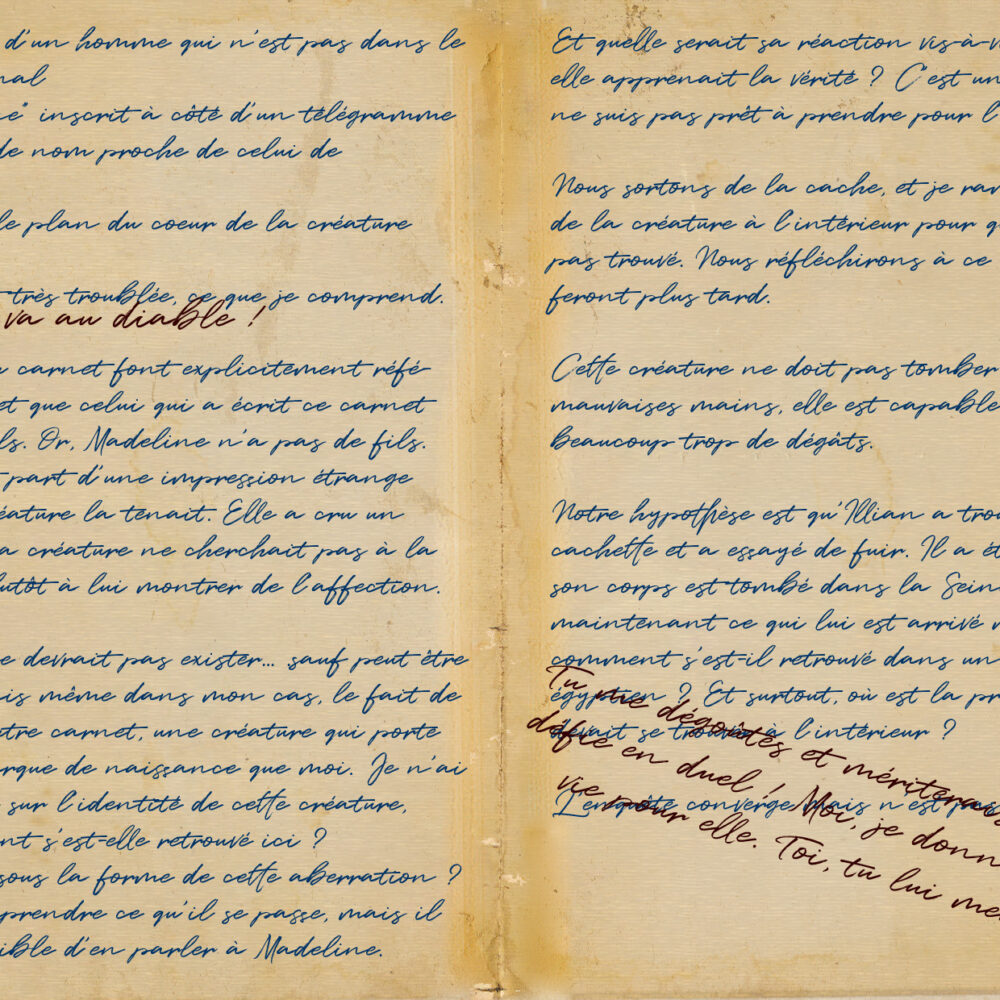 d'un homme qui n'est pas dans le
nal
e" inscrit à côté d'un télégramme
de nom proche de celui de
le plan du coeur de la créature
très troublée, ce que je comprend.
va au diable !
carnet font explicitement réfé-
et que celui qui a écrit ce carnet
ls. Or, Madeline n'a pas de fils.
part d'une impression étrange
éature la tenait. Elle a cru un
a créature ne cherchait pas à la
lutôt à lui montrer de l'affection.
e devrait pas exister... sauf peut être
is même dans mon cas, le fait de
tre carnet, une créature qui porte
rque de naissance que moi. Je n'ai
sur l'identité de cette créature,
nt s'est-elle retrouvé ici ?
sous la forme de cette aberration ?
prendre ce qu'il se passe, mais il
ible d'en parler à Madeline.
Et quelle serait sa réaction vis-à-v
elle apprenait la vérité ? C'est un
ne suis pas prêt à prendre pour l'
Nous sortons de la cache, et je ran
de la créature à l'intérieur pour q
pas trouvé. Nous réfléchirons à ce
feront plus tard.
Cette créature ne doit pas tomber
mauvaises mains, elle est capable
beaucoup trop de dégâts.
Notre hypothèse est qu'Illian a trou
cachette et a essayé de fuir. Il a ét
son corps est tombé dans la Sein
maintenant ce qui lui est arrivé
comment s'est-il retrouvé dans un
égyptien ? Et surtout, où est la pr
devait se trouver à l'intérieur ?
L'enquête converge mais n'est pas
Tu me dégoûtes et mériterais
défie en duel ! Moi, je donn
vie pour elle. Toi, tu lui me